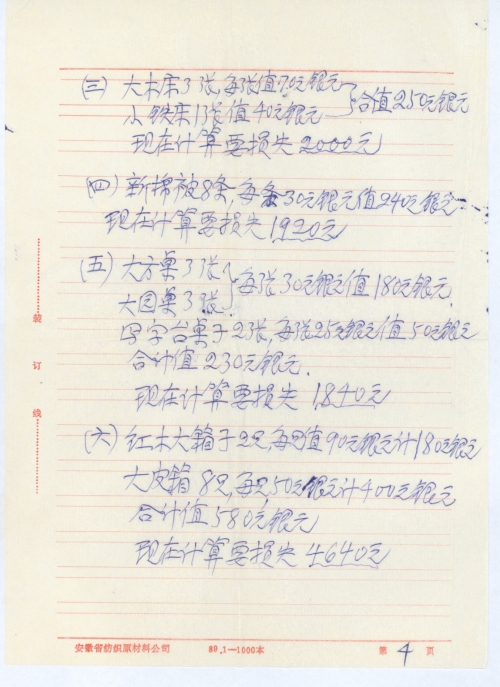 (三) 大木床3张,每张值70元银元
小铁床1张值40元银元 合值250元银元
现在计算要损失2000元
(四) 新棉被8条,每条30元银元值240元银元
现在计算要损失1920元
(五) 大方桌3张
大园桌3张 每张30元银元值180元银元.
写字台桌子2张,每张25元银元值50元银元
合计值230元银元.
现在计算要损失1840元
(六) 红木大箱子2只,每只值90元银元计180元银元
大皮箱8只,每只50元银元计400元银元
合计值580元银元
现在计算要损失4640元
装
订
线
安徽省纺织原材料公司 89.1—1000本 第4页